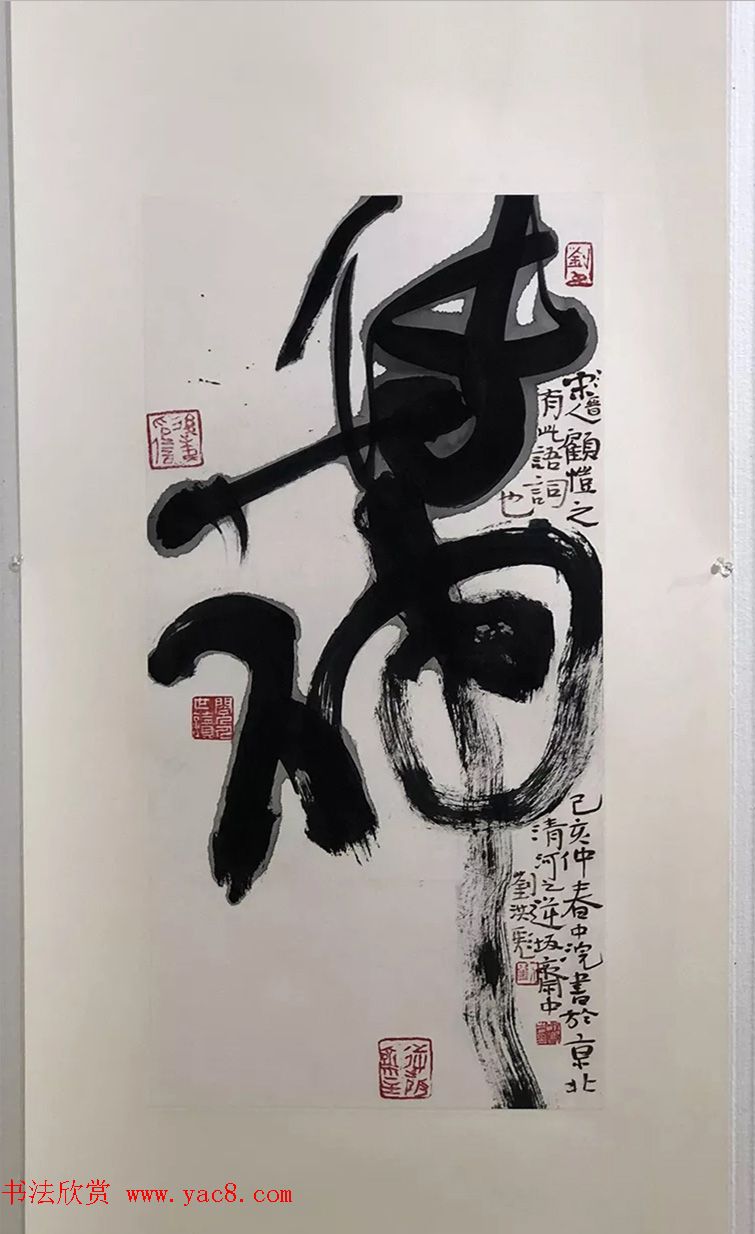 傳神
宋人晋顧愷之
有此語詞
也
己亥仲春中浣書於京北
清河之逆坂齋中
劉洪彪
书法欣赏 www.yac8.com